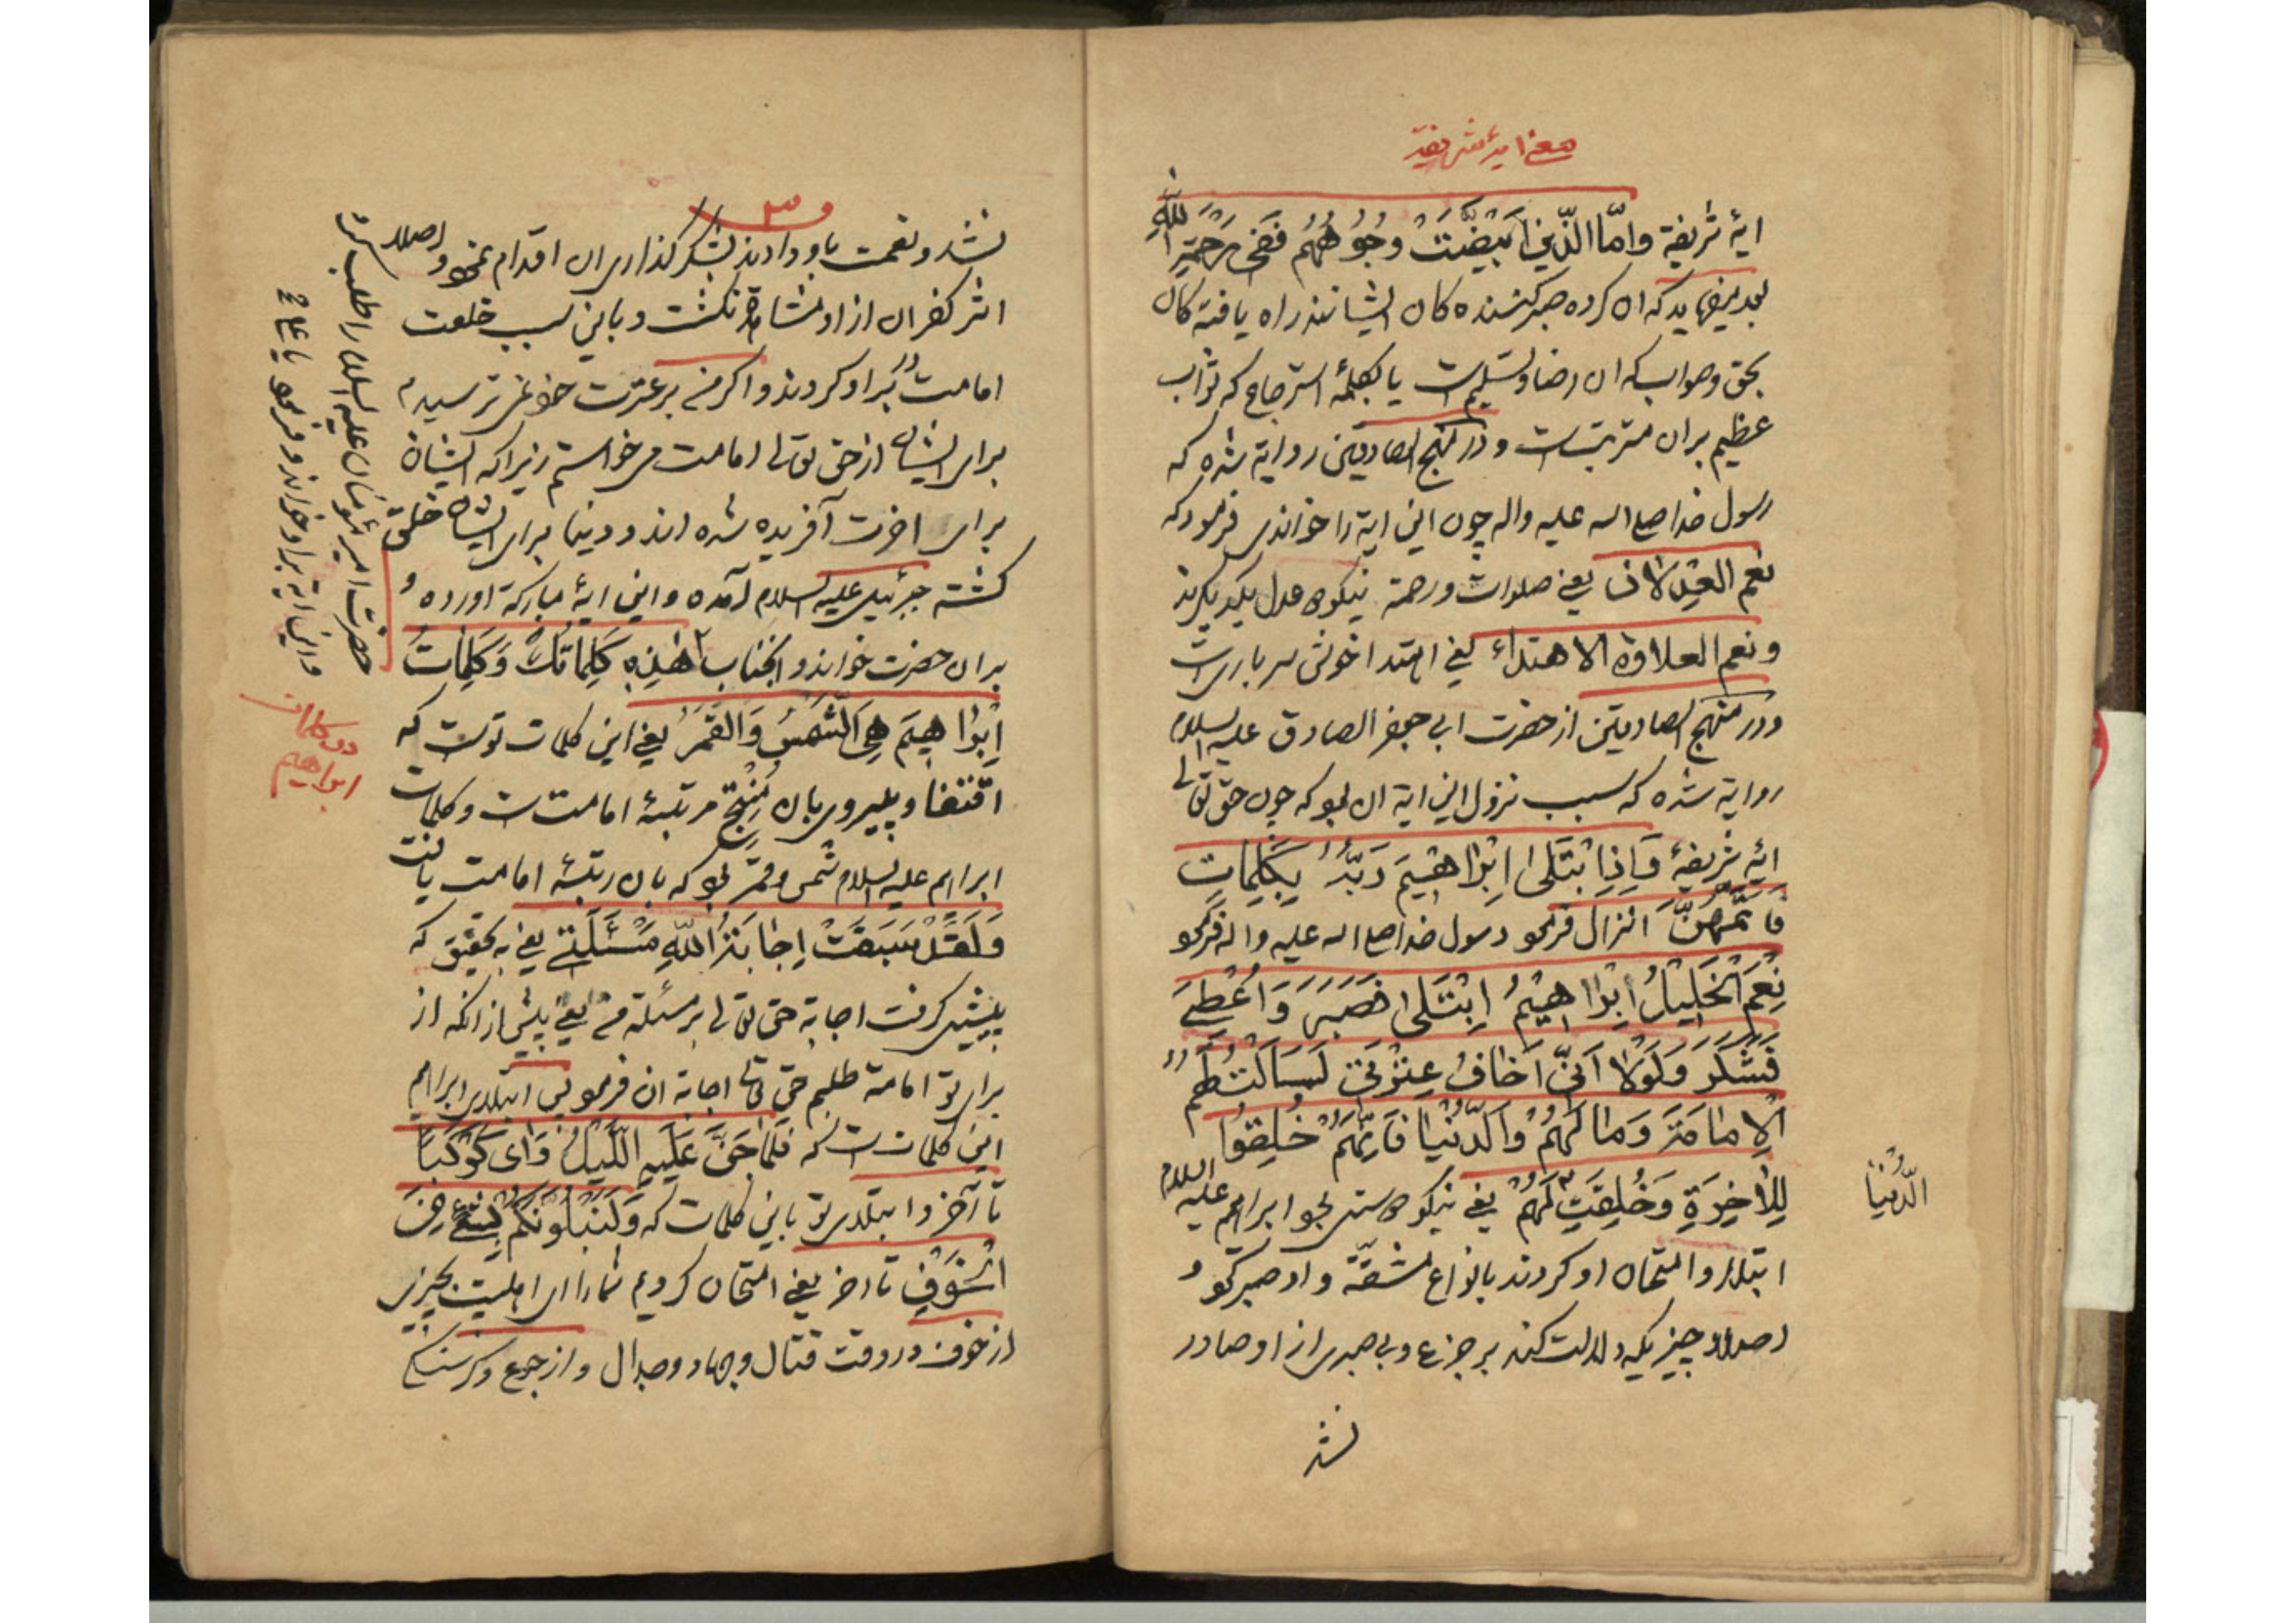 معنی ایهٔ شریفه
ایهٔ شریفة وامّا الّذین ابْیَضَّتْ وُجُوهُهُم فَفی رَحْمَةِ اللّهِ
بعد میفرماید که ان کرده صبر کننده کان ایشانند راه یافته کان
بحق وصواب که ان رضا وتسلیمست یا بکلمهٔ استرجاع که ثواب
عظیم بران مترتبست ودر منهج الصادقین روایة شده که
رسول خدا صلی الله علیه واله چون این ایة را خواندی فرمود که
نعم العِدلان یعنی صلوات ورحمة نیکو عدل یکدیکرند
ونعم العلاوة الاهتداء یعنی اهتدا خوش سرباریست
ودر منهج الصادقین از حضرت ابی جعفر الصادق علیه السلام
روایة شده که سبب نزول این ایة ان بود که چون حق تعالی
ایهٔ شریفهٔ وَاِذِابْتَلی اِبْراهیمَ رَبُّهُ بِکَلِماتٍ
فَاَتَمَّهُنَّ انزال فرمود رسول خدا صلی الله علیه واله فرمود
نِعْمَ الْخَلیلُ اِبْراهیمُ اِبْتَلی فَصَبَرَ وَاُعْطِیَ
فَشَکَرَ وَلَوْلا اَنّی اَخافُ عِتْرَتی لَسَاَلْتُ لَهُمُ
الْاِمامَةَ وَمالَهُمْ وَالدُّنْیا فَاِنَّهُمْ خُلِقُوا
لِلْاخِرَةِ وَخُلِقَتْ لَهُمُ یعنی نیکو دوستی بود ابراهیم علیه السلام
الدُّنْیا
ابتلا وامتحان او کردند بانواع مشقّة واو صبر نمود و
اصلا چیزیکه دلالت کند بر جزع وبی صبری از او صادر
نشد
۳
نشد ونعمت باو دادند بشکر گذاری ان اقدام نمود واصلا
اثر کفران از او مشاهده نکشت وباین سبب خلعت
امامت دربر او کردند واکر من بر عترت خود نمی ترسیدم
برای ایشان از حق تعالی امامت می خواستم زیرا که ایشان
برای اخرت آفریده شده اند ودنیا برای ایشان خلق
کشته جبرئیل علیه السلام آمده واین ایهٔ مبارکة اورده و
بران حضرت خواند وانجناب
حضرت امیرمؤمنان علیه السلام را طلب کرد
واین ایة براو خواند وفرمود یا علی
هٰذِهِ کَلِماتُکَ وَکَلِماتُ
دو کلمات
ابراهیم
اِبْراهیمَ هِیَ الشَّمْسُ وَالْقَمَرُ یعنی این کلمات توست که
اقتفا وپیروی بان مُنْتِج مرتبهٔ امامتست وکلمات
ابراهیم علیه السلام شمس وقمر بود که بان رتبهٔ امامت یافت
وَلَقَدْ سَبَقَتْ اِجابَةُ اللّهِ مَسْئَلَتی یعنی به تحقیق که
پیشی کرفت اجابة حق تعالی بر مسئلهٔ من یعنی پیش از انکه از
برای تو امامة طلبم حق تعالی اجابة ان فرمود پس ابتلای ابراهیم
این کلماتست که فَلَمّا جَنَّ عَلَیْهِ اللَّیْلُ رَأی کَوْکَباً
تا آخر وابتلای تو باین کلمات که وَلَنَبْلُوَنَّکُمْ بِشَیْءٍ مِنَ
الْخَوْفِ تا اخر یعنی امتحان کردیم شما را ای اهلبیت بچیزی
از خوف در وقت قتال وجهاد وجدال واز جوع وکرسنکی